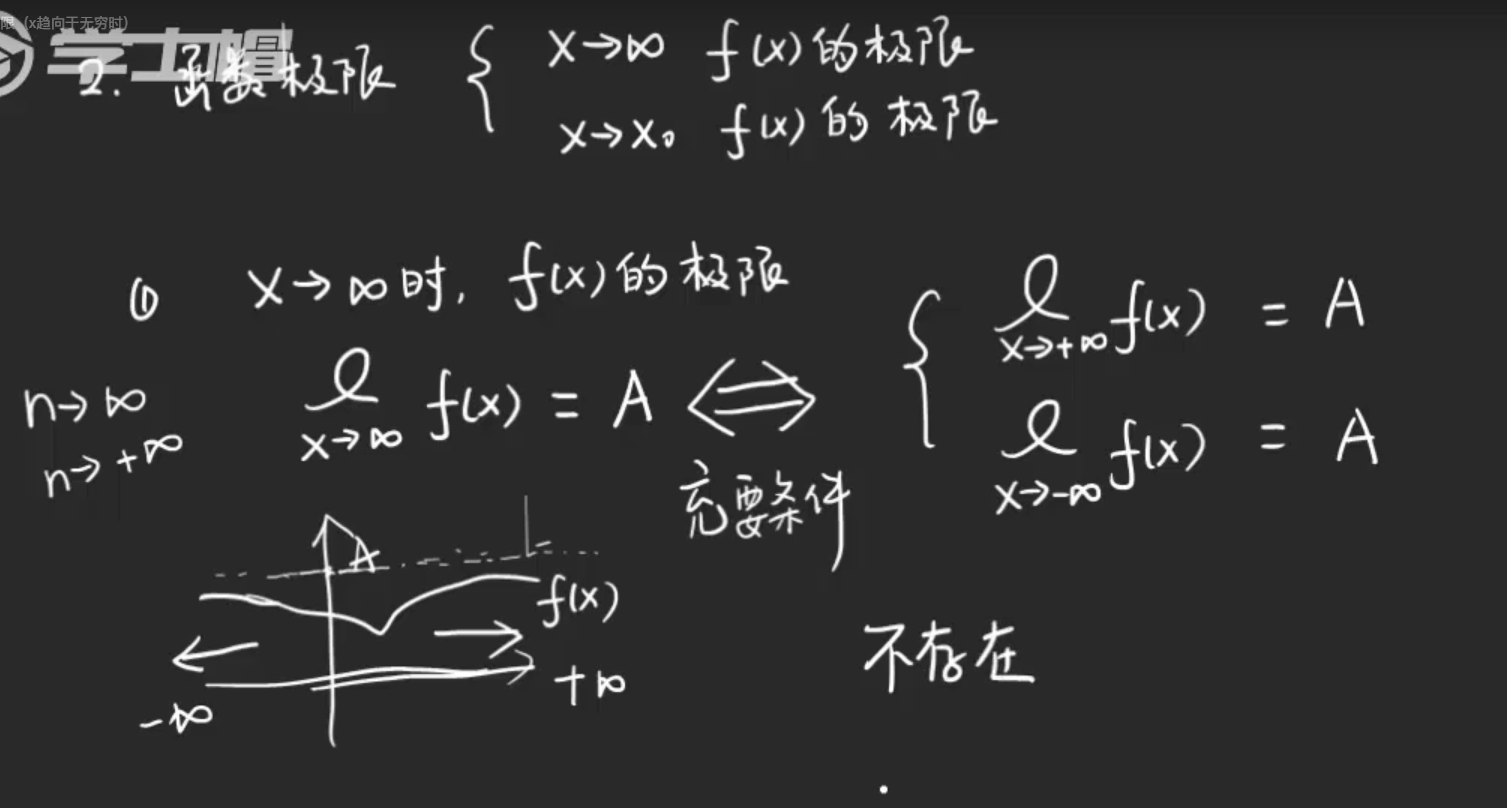 限（x趋向于无穷时）
学士帽
2. 函数极限 { x→∞ f(x)的极限
x→x₀ f(x)的极限
① x→∞时, f(x)的极限
n→∞
n→+∞
l x→∞ f(x) = A ⟺ { l x→+∞ f(x) = A
l x→-∞ f(x) = A
充要条件
A
f(x)
-∞
+∞
不存在